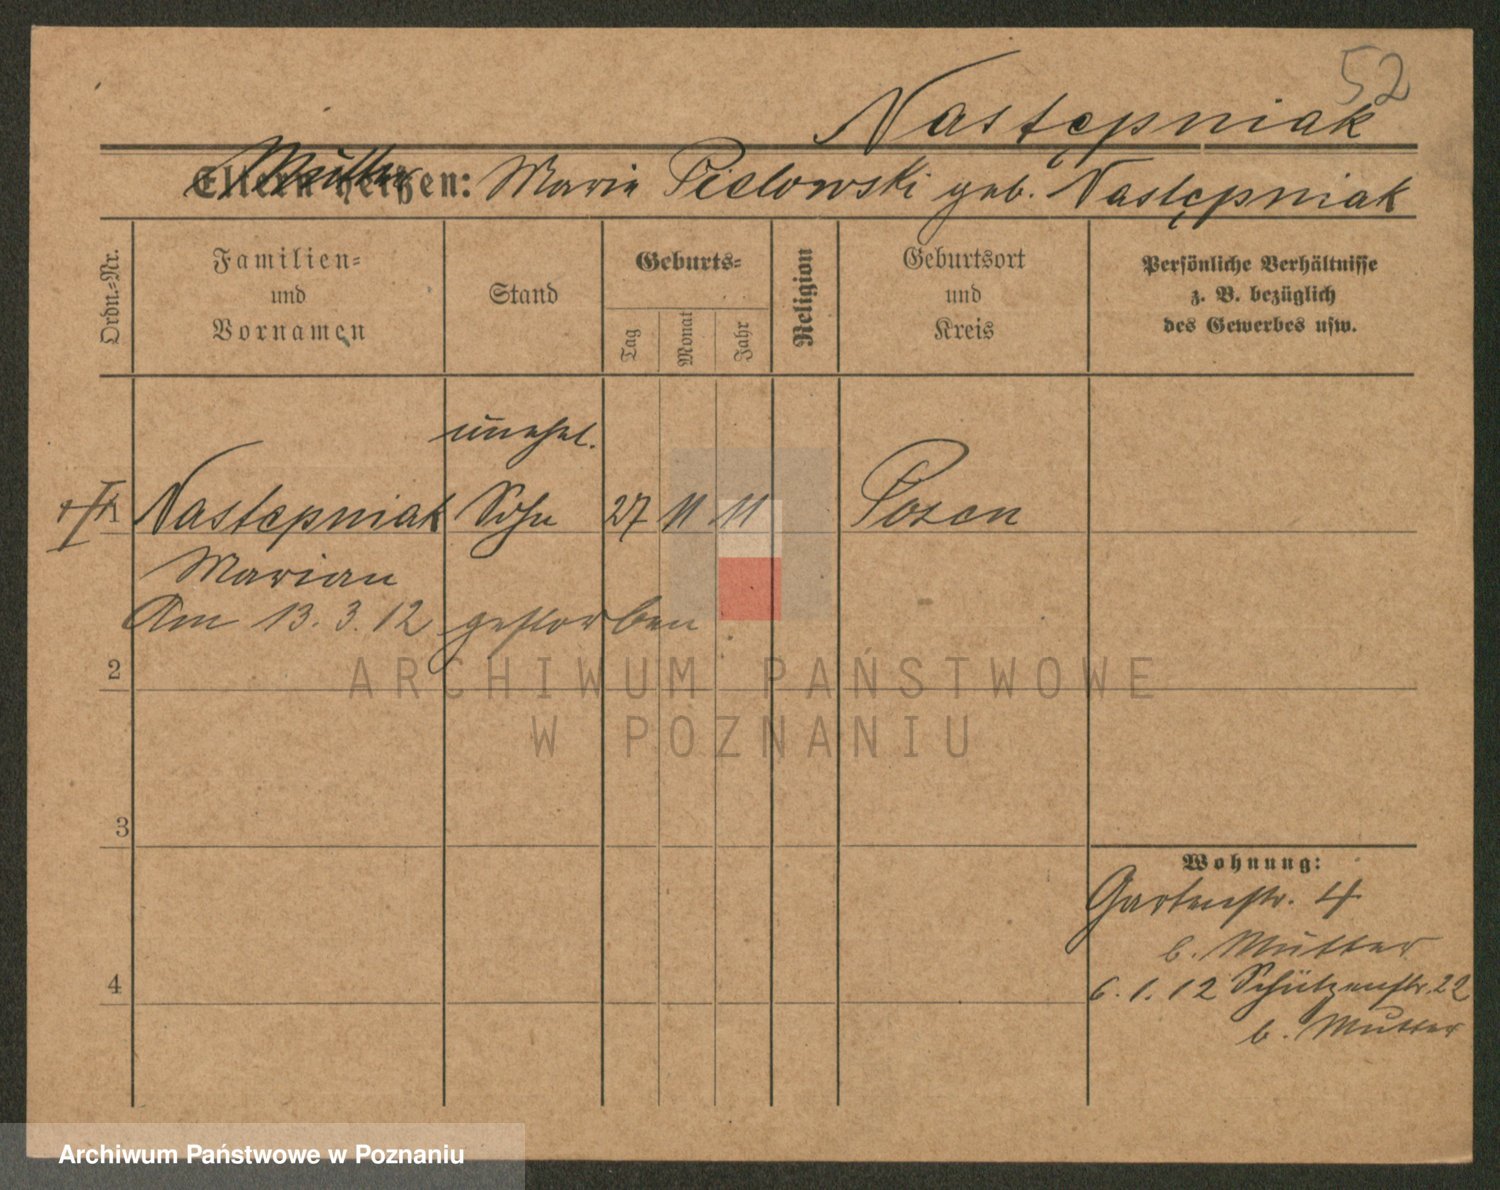 52
Następniak
Eltern heißen: Mutter Marie Pislowski geb. Następniak
Ordn.-Nr.
Familien-
und
Vornamen
Stand
Geburts-
Tag
Monat
Jahr
Religion
Geburtsort
und
Kreis
Persönliche Verhältnisse
z. B. bezüglich
des Gewerbes usw.
unehel.
1 Następniak Sohn 27 11 11 Posen
Marian
Am 13. 3. 12 gestorben
2
3
4
Wohnung:
Gartenstr. 4
b. Mutter
6. 1. 12 Schützenstr. 22
b. Mutter
ARCHIWUM PAŃSTWOWE
W POZNANIU
Archiwum Państwowe w Poznaniu